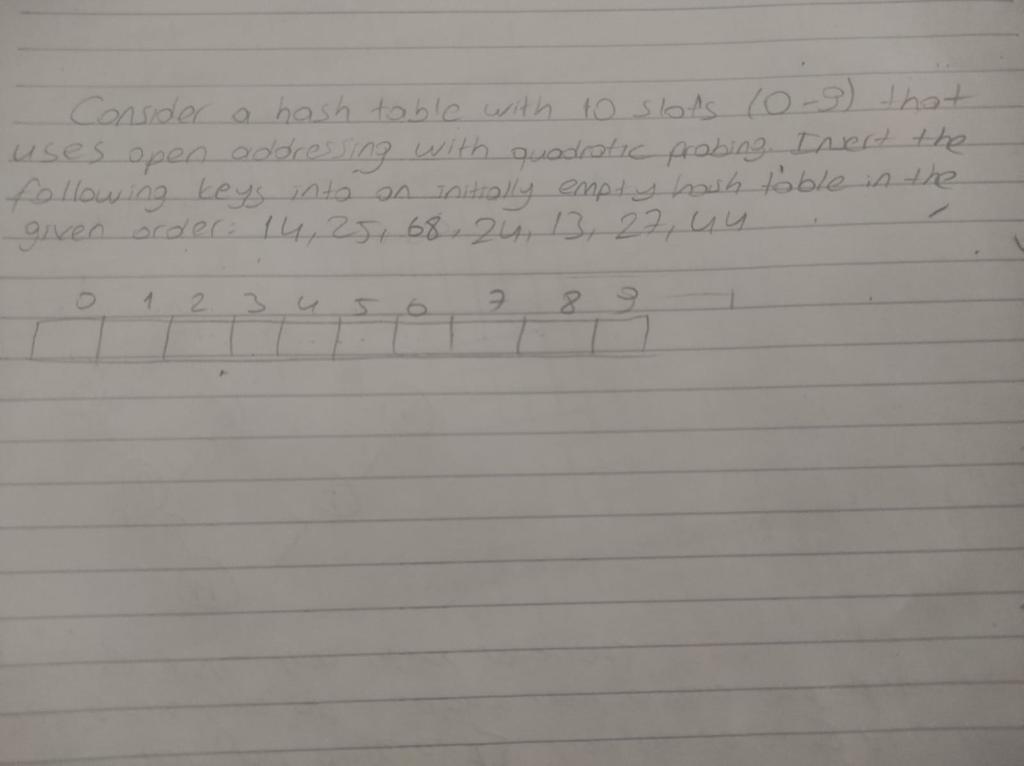 Consider a hash table with 10 slots (0-9) that
uses open addressing with quadratic probing. Insert the
following keys into an initially empty hash table in the
given order: 14, 25, 68, 24, 13, 27, 44
0 1 2 3 4 5 6 7 8 9